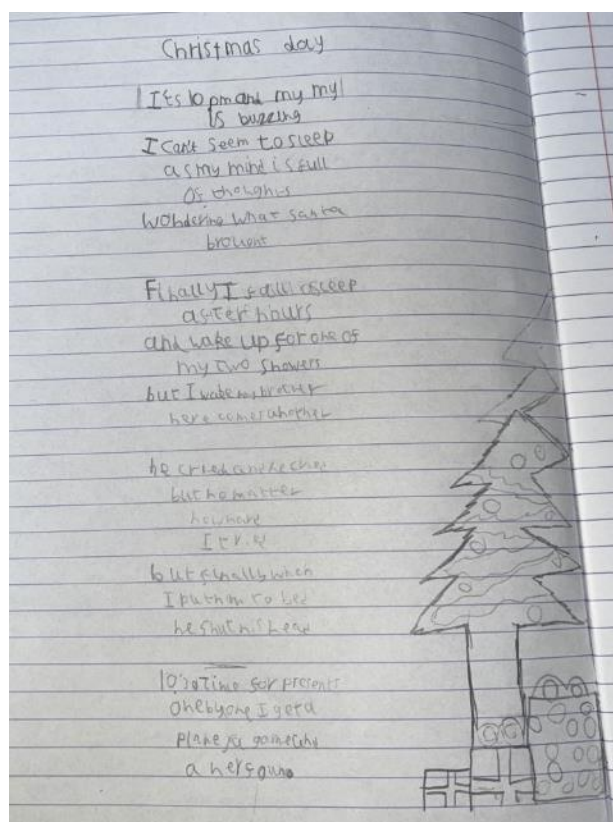 Christmas day
Its 10 pm and my my
is buzzing
I can't seem to sleep
as my mind is full
of thoughts
wondering what santa
brought
Finally I fall asleep
after hours
and wake up for one of
my two showers
but I wake my brother
here comes another
he cried and he cried
but no matter
how hard
I tried
but finally when
I put him to bed
he shut his head
time for presents
one by one I get a
plane a game
a nerf gun